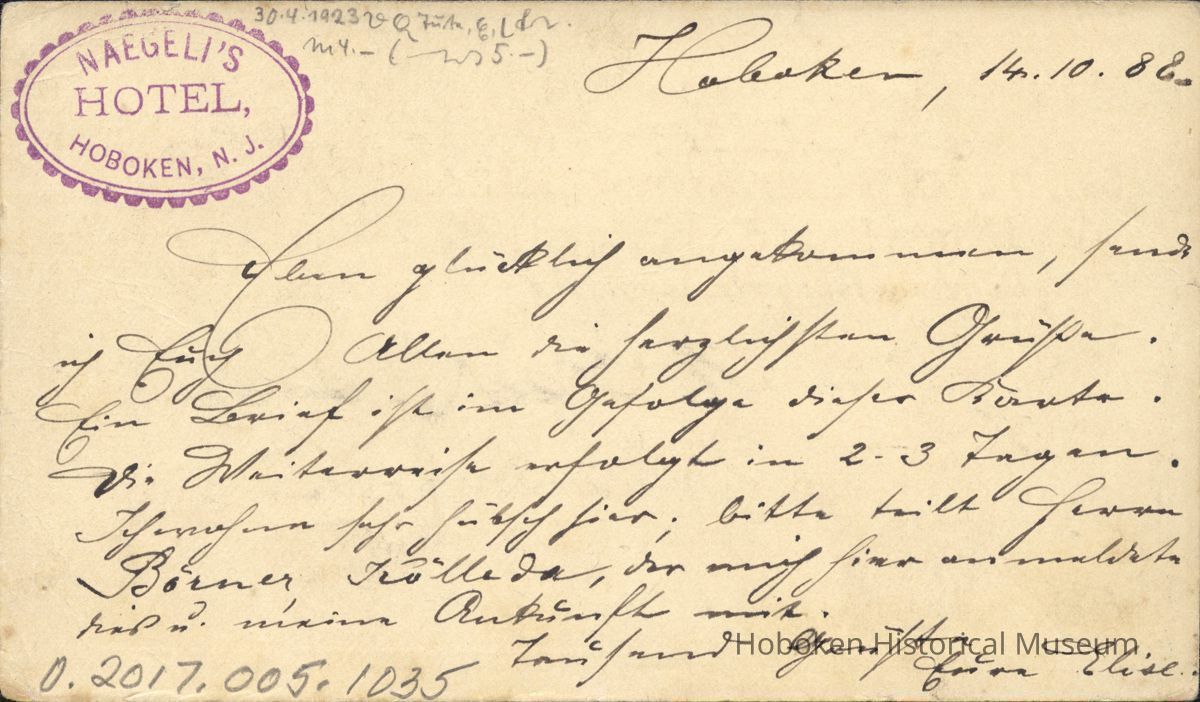 30.4.1923
NAEGELI'S
HOTEL,
HOBOKEN, N. J.
Hoboken, 14.10.88.
Eben glücklich angekommen, sende
ich Euch Allen die herzlichsten Grüße.
Ein Brief ist im Gefolge dieser Karte.
Die Weiterreise erfolgt in 2-3 Tagen.
Ich wohne sehr hübsch hier, bitte teilt Herrn
Börner, Kölleda, der mich hier anmeldete
dies u. meine Ankunft mit.
Tausend Grüße
Eure Elise.
Hoboken Historical Museum
0.2017.005.1035